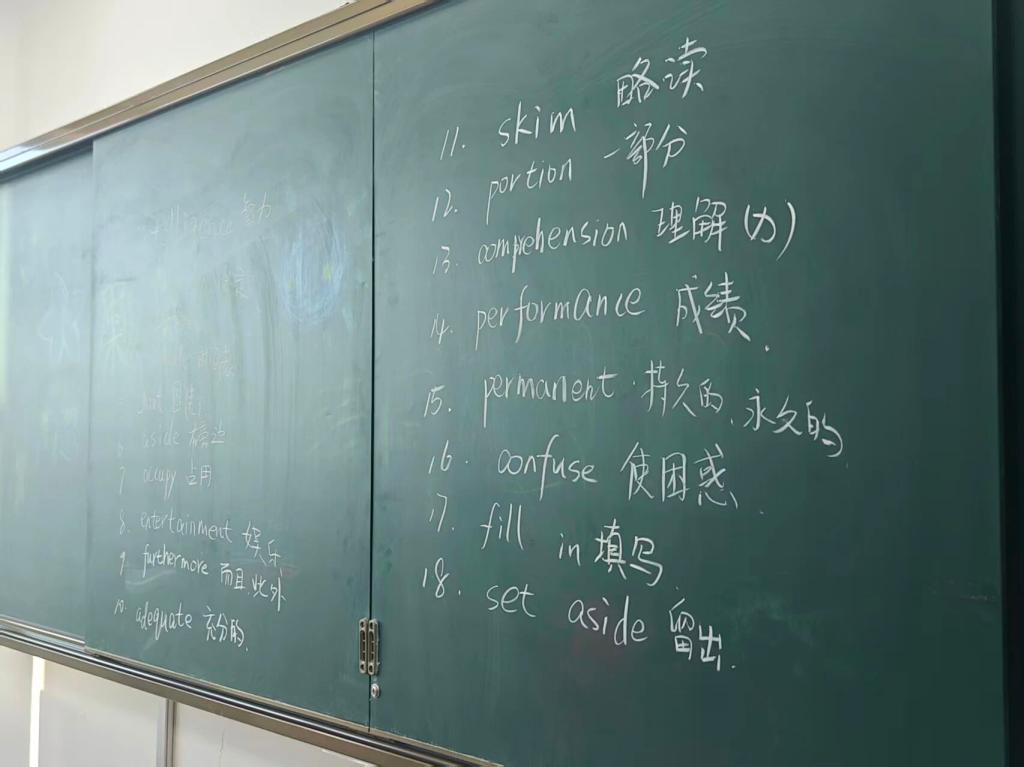 智力
aside 旁边
7 occupy 占用
8. entertainment 娱乐
9. furthermore 而且,此外
10. adequate 充分的.
11. skim 略读
12. portion 一部分
13. comprehension 理解(力)
14. performance 成绩.
15. permanent. 持久的、永久的.
16. confuse 使困惑.
17. fill in 填写.
18. set aside 留出.